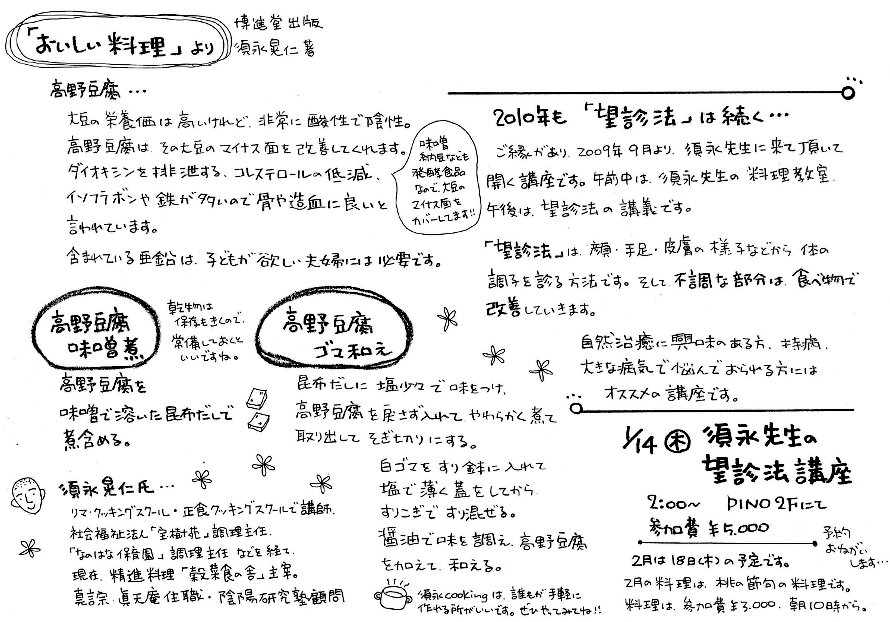 「おいしい料理」より
博進堂出版
須永晃仁著
高野豆腐…
大豆の栄養価は高いけれど、非常に酸性で陰性。
高野豆腐は、その大豆のマイナス面を改善してくれます。
ダイオキシンを排泄する、コレステロールの低減、
イソフラボンや鉄が多いので骨や造血に良いと
言われています。
含まれている亜鉛は、子どもが欲しい夫婦には必要です。
味噌
納豆なども
発酵食品
なので、大豆の
マイナス面を
カバーしてます!!
高野豆腐
味噌煮
乾物は
保存もきくので、
常備しておくと
いいですね。
高野豆腐を
味噌で溶いた昆布だしで
煮含める。
高野豆腐
ゴマ和え
昆布だしに塩少々で味をつけ、
高野豆腐を戻さず入れてやわらかく煮て
取り出してそぎ切りにする。
白ゴマをすり鉢に入れて
塩で薄く蓋をしてから
すりこぎですり混ぜる。
醤油で味を調え、高野豆腐
を加えて、和える。
須永cookingは、誰もが手軽に
作れる所がいいです。ぜひやってみてね!!
須永晃仁氏…
リマ・クッキングスクール・正食クッキングスクールで講師、
社会福祉法人「宝樹苑」調理主任、
「なのはな保育園」調理主任などを経て、
現在、精進料理「穀菜食の舎」主宰。
真言宗 眞天庵住職・陰陽研究塾顧問
2010年も「望診法」は続く…
ご縁があり、2009年9月より、須永先生に来て頂いて
開く講座です。午前中は、須永先生の料理教室、
午後は、望診法の講義です。
「望診法」は、顔・手足・皮膚の様子などから体の
調子を診る方法です。そして不調な部分は、食べ物で
改善していきます。
自然治癒に興味のある方、持病、
大きな病気で悩んでおられる方には
オススメの講座です。
1/14(木)須永先生の
望診法講座
2:00〜 PINO2Fにて
参加費¥5,000
予約
おねがい
します…
2月は18日(木)の予定です。
2月の料理は、桃の節句の料理です。
料理は、参加費¥3,000、朝10時から。